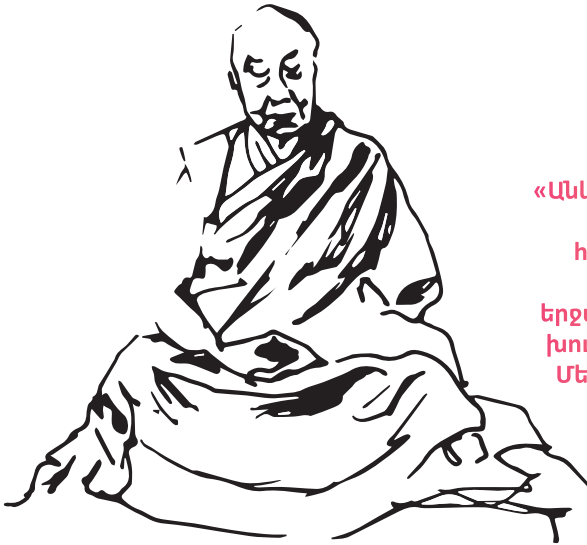 «Ան
հ
երջ
խու
Մե